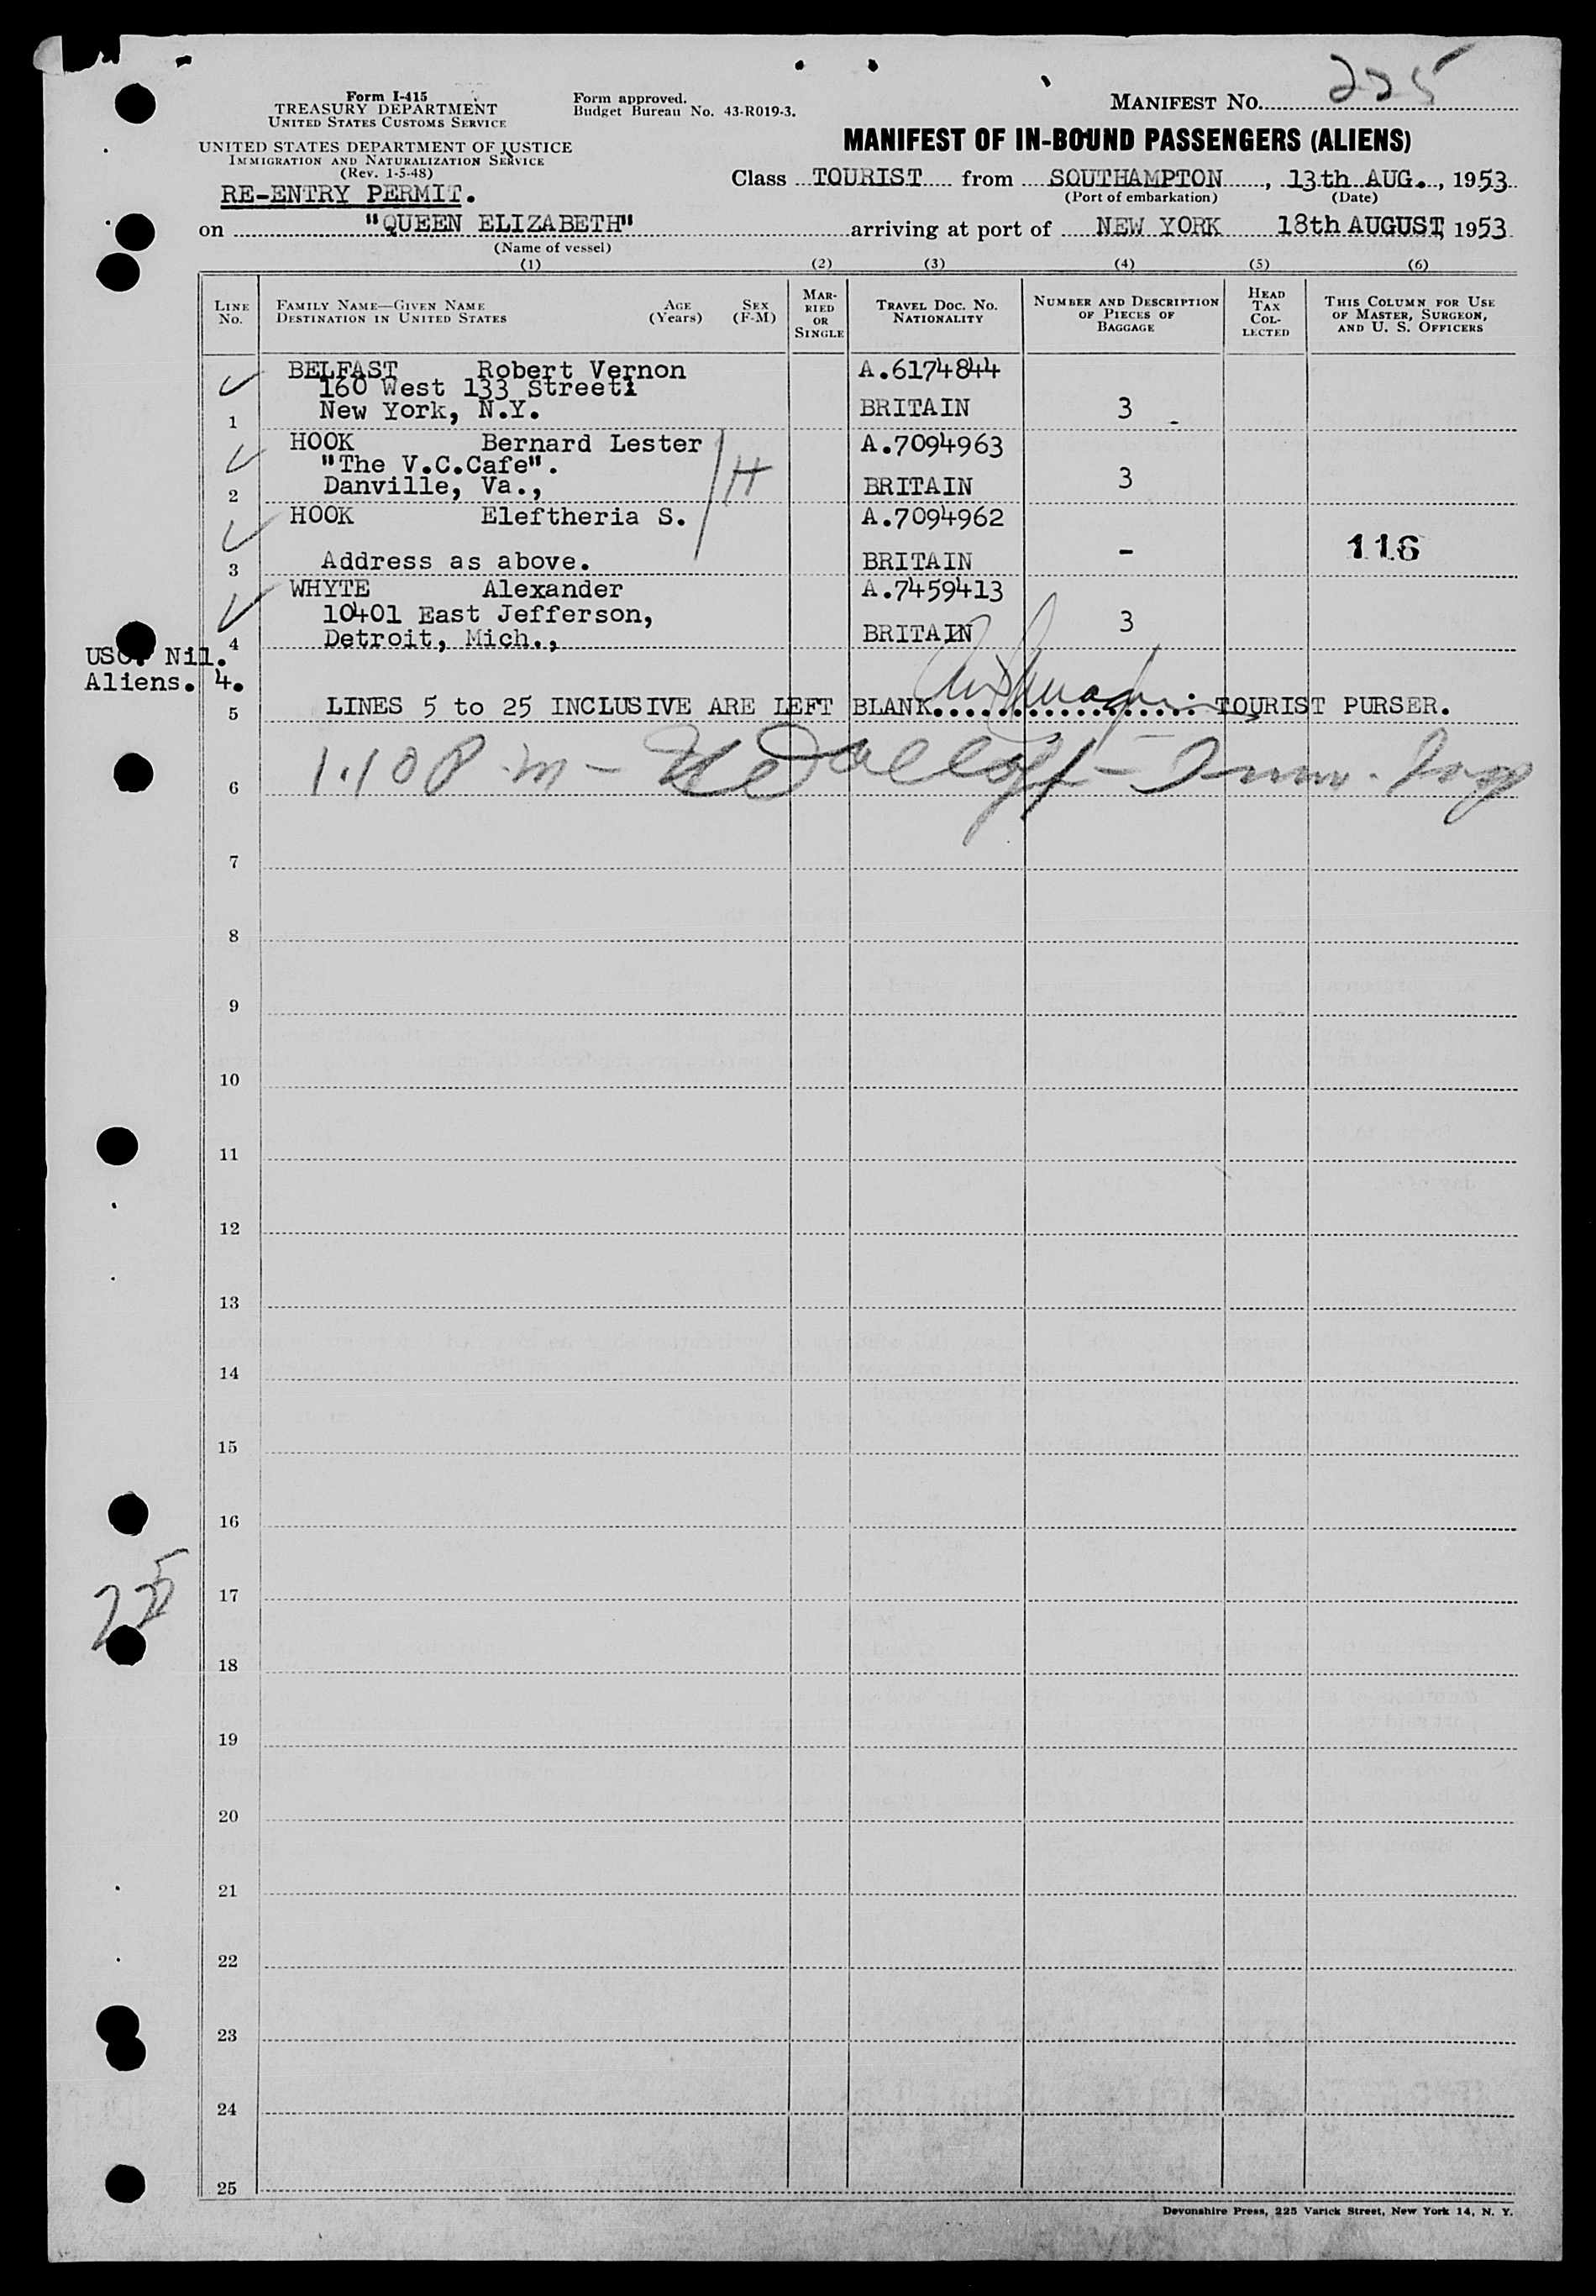 225
Form I-415
TREASURY DEPARTMENT
UNITED STATES CUSTOMS SERVICE
Form approved.
Budget Bureau No. 43-R019-3.
MANIFEST NO.
MANIFEST OF IN-BOUND PASSENGERS (ALIENS)
UNITED STATES DEPARTMENT OF JUSTICE
IMMIGRATION AND NATURALIZATION SERVICE
(Rev. 1-5-48)
RE-ENTRY PERMIT.
Class TOURIST from SOUTHAMPTON, 13th AUG., 1953
(Port of embarkation) (Date)
on "QUEEN ELIZABETH" arriving at port of NEW YORK 18th AUGUST, 1953
(Name of vessel)
(1) (2) (3) (4) (5) (6)
LINE NO.
FAMILY NAME—GIVEN NAME AGE SEX
DESTINATION IN UNITED STATES (Years) (F-M)
MARRIED OR SINGLE
TRAVEL DOC. NO. NATIONALITY
NUMBER AND DESCRIPTION OF PIECES OF BAGGAGE
HEAD TAX COLLECTED
THIS COLUMN FOR USE OF MASTER, SURGEON, AND U. S. OFFICERS
BELFAST Robert Vernon A.6174844
160 West 133 Street1
1 New York, N.Y. BRITAIN 3
HOOK Bernard Lester A.7094963
"The V.C.Cafe". H
2 Danville, Va., BRITAIN 3
HOOK Eleftheria S. A.7094962
116
3 Address as above. BRITAIN -
WHYTE Alexander A.7459413
10401 East Jefferson,
4 Detroit, Mich., BRITAIN 3
USC. Nil.
Aliens. 4.
5 LINES 5 to 25 INCLUSIVE ARE LEFT BLANK. TOURIST PURSER.
6 1.10 P.m -
7
8
9
10
11
12
13
14
15
16
225
17
18
19
20
21
22
23
24
25
Devonshire Press, 225 Varick Street, New York 14, N. Y.